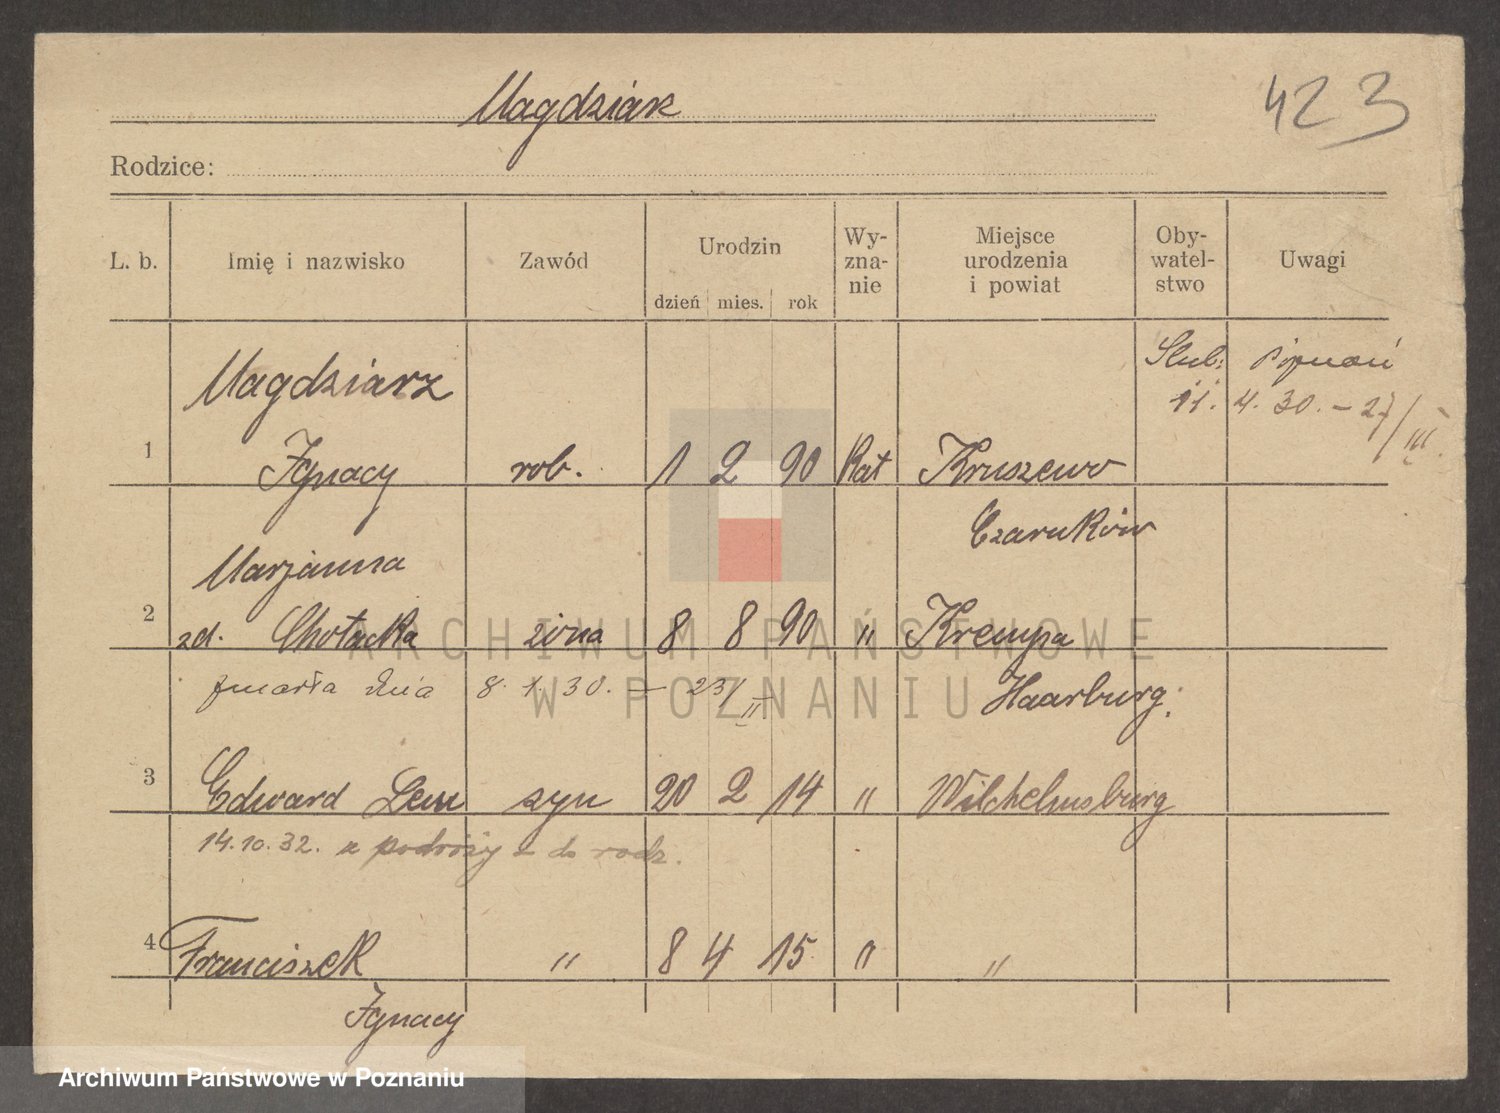 Magdziarz
423
Rodzice:
L. b. Imię i nazwisko Zawód Urodzin dzień mies. rok Wy-zna-nie Miejsce urodzenia i powiat Oby-watel-stwo Uwagi
Ślub: Poznań
11. 4. 30. – 27/III.
Magdziarz
1 Ignacy rob. 1 2 90 Kat Kruszewo
Czarnków
Marjanna
2 zd. Chołacka żona 8 8 90 " Krempa
zmarła dnia 8. 1. 30. – 23/II
Haarburg.
3 Edward Leon syn 20 2 14 " Wilchelmsburg
14.10.32. z podróży – do rodz.
4 Franciszek " 8 4 15 " "
Ignacy
ARCHIWUM PAŃSTWOWE
W POZNANIU
Archiwum Państwowe w Poznaniu